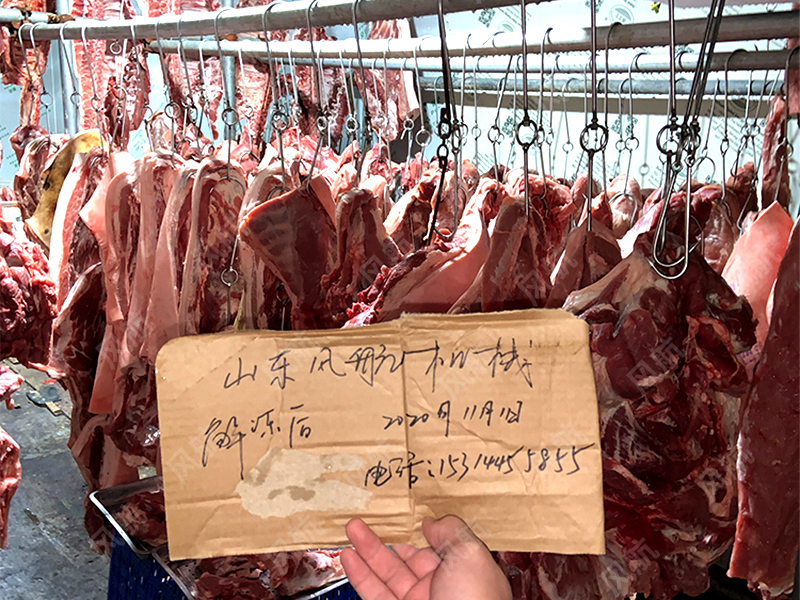 山东风航机械
解冻后 2020年11月1日
电话:15314455855